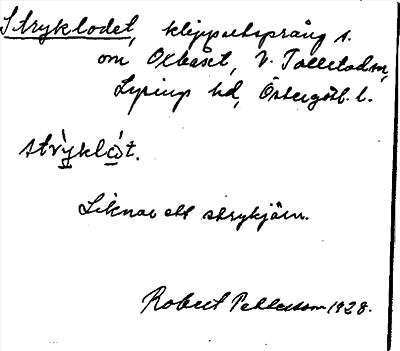 Stryklodet, klipputsprång s.
om Oxbåset, V. Tollstad sn,
Lysings hd, Östergötl. l.
strỳkló̀t.
Liknar ett strykjärn.
Robert Pettersson 1928.